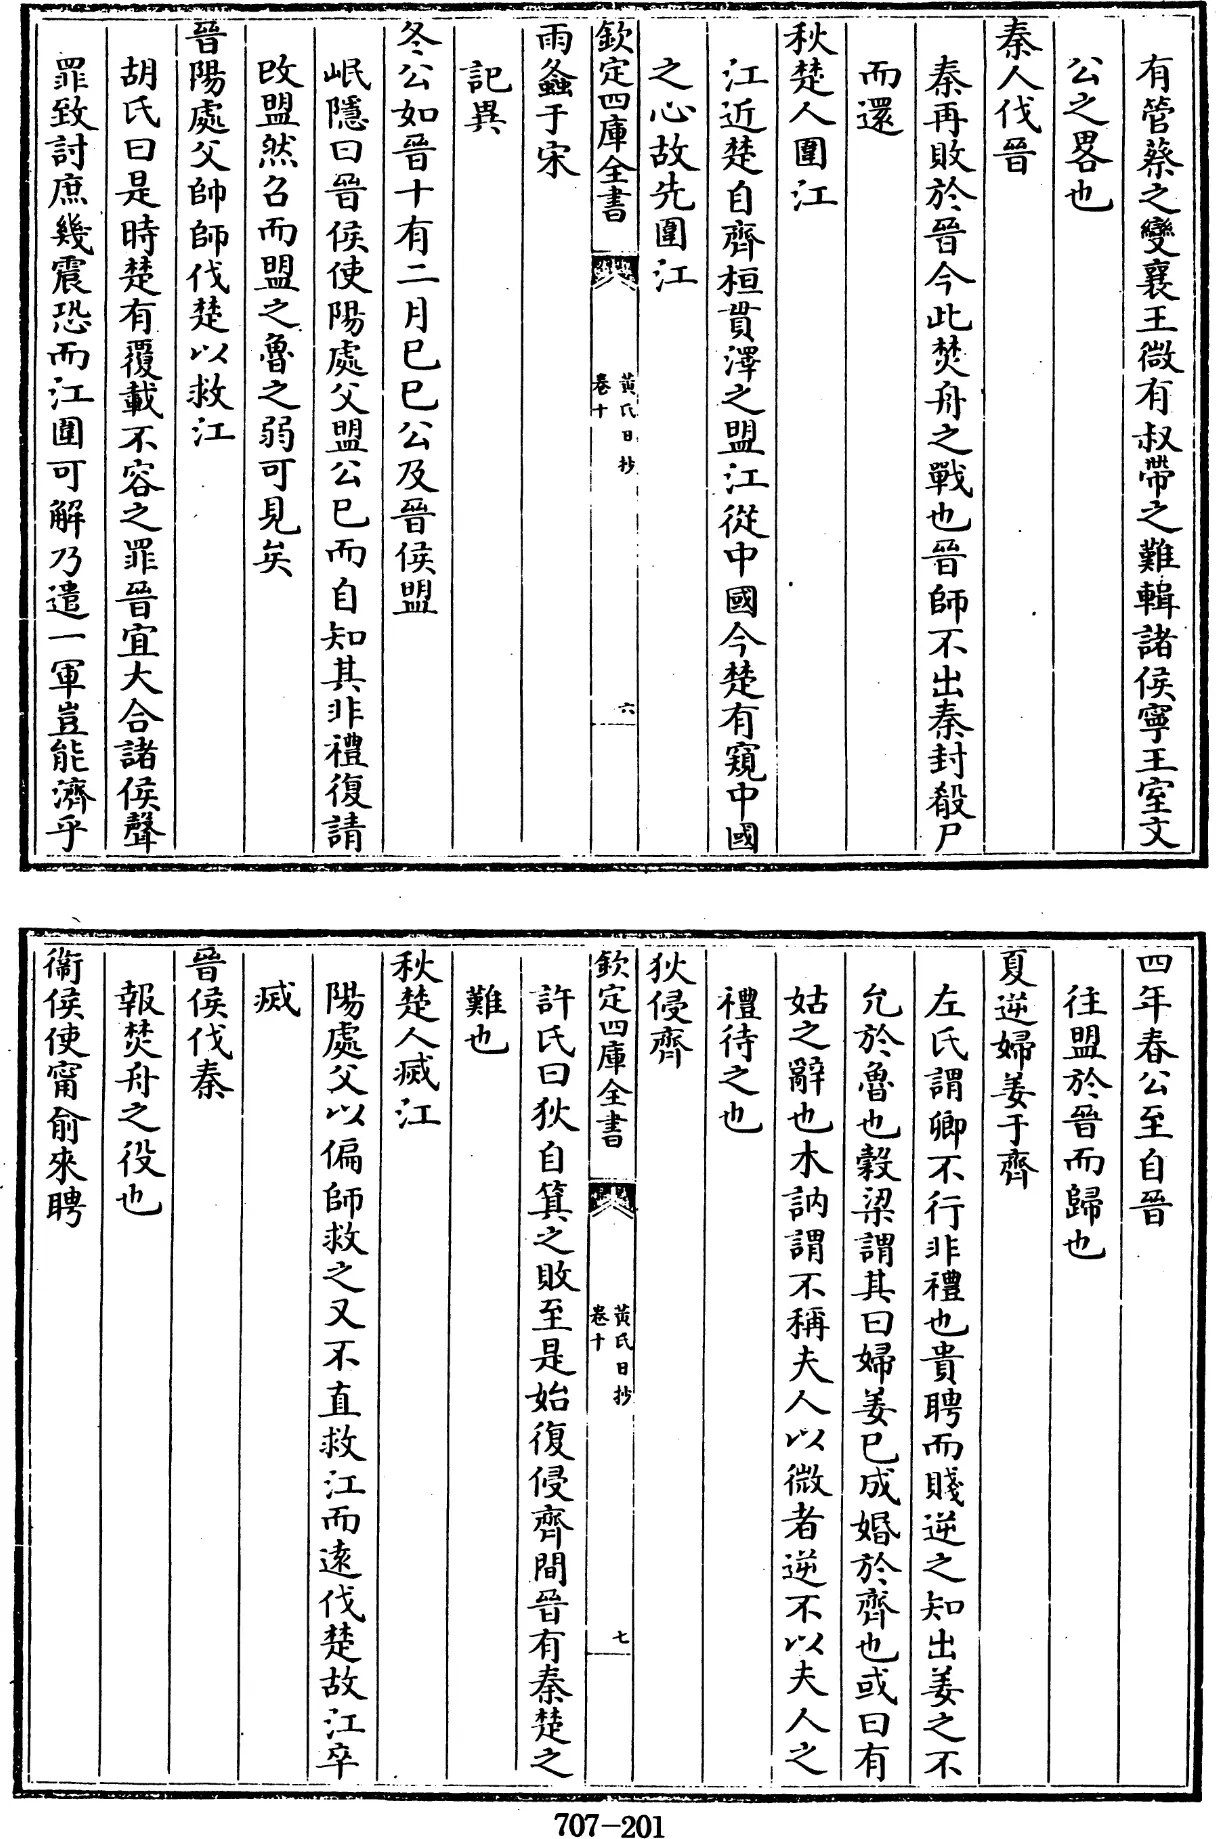 有管蔡之變襄王微有叔帶之難輯諸侯寧王室文
公之畧也
秦人伐晉
秦再敗於晉今此焚舟之戰也晉師不出秦封殽尸
而還
秋楚人圍江
江近楚自齊桓貫澤之盟江從中國今楚有窺中國
之心故先圍江
欽定四庫全書
黃氏日抄
卷十
六
雨螽于宋
記異
冬公如晉十有二月己巳公及晉侯盟
岷隱曰晉侯使陽處父盟公已而自知其非禮復請
改盟然召而盟之魯之弱可見矣
晉陽處父帥師伐楚以救江
胡氏曰是時楚有覆載不容之罪晉宜大合諸侯聲
罪致討庶幾震恐而江圍可解乃遣一軍豈能濟乎
四年春公至自晉
往盟於晉而歸也
夏逆婦姜于齊
左氏謂卿不行非禮也貴聘而賤逆之知出姜之不
允於魯也榖梁謂其曰婦姜已成婚於齊也或曰有
姑之辭也木訥謂不稱夫人以微者逆不以夫人之
禮待之也
狄侵齊
欽定四庫全書
黃氏日抄
卷十
七
許氏曰狄自箕之敗至是始復侵齊間晉有秦楚之
難也
秋楚人滅江
陽處父以偏師救之又不直救江而遠伐楚故江卒
滅
晉侯伐秦
報焚舟之役也
衛侯使甯俞來聘
707-201